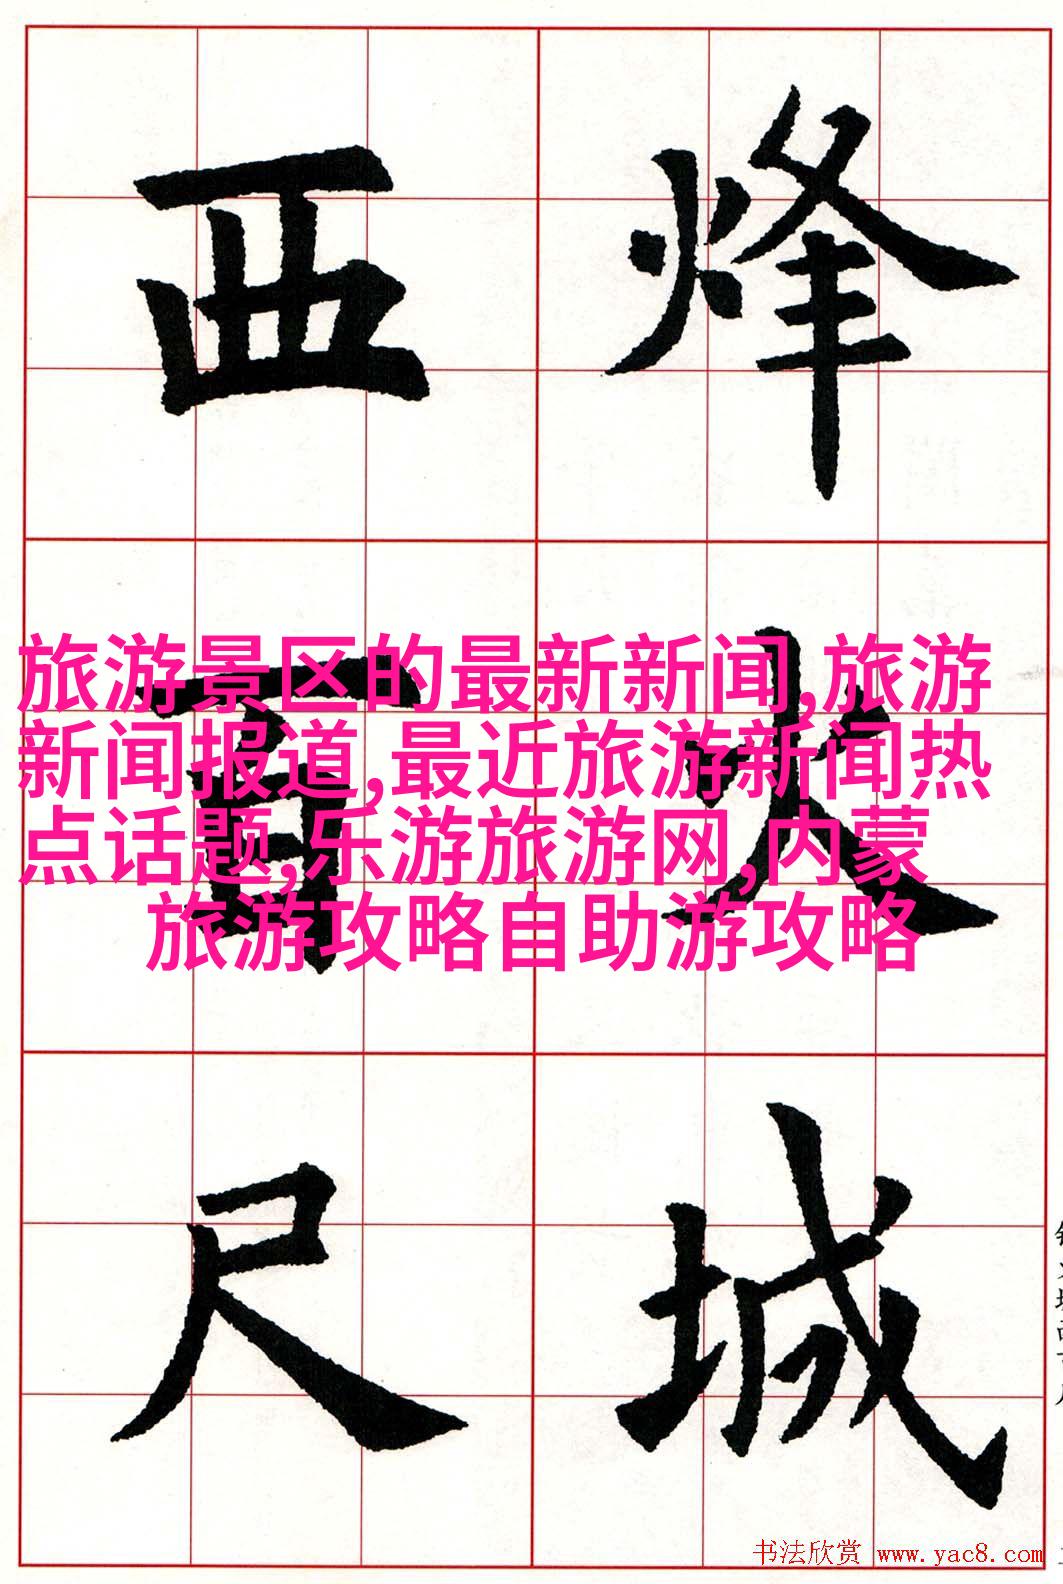 烽火城
西百尺
旅游景区的最新新闻,旅游
新闻报道,最近旅游新闻热
点话题,乐游旅游网,内蒙
旅游攻略自助游攻略
书法欣赏 www.yac8.com